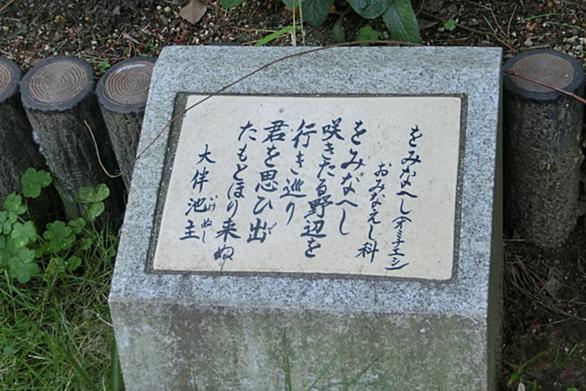 をみなへし(オミナエシ)
おみなえし科
をみなへし
咲きたる野辺を
行き巡り
君を思ひ出
たもとほり来ぬ
大伴池主